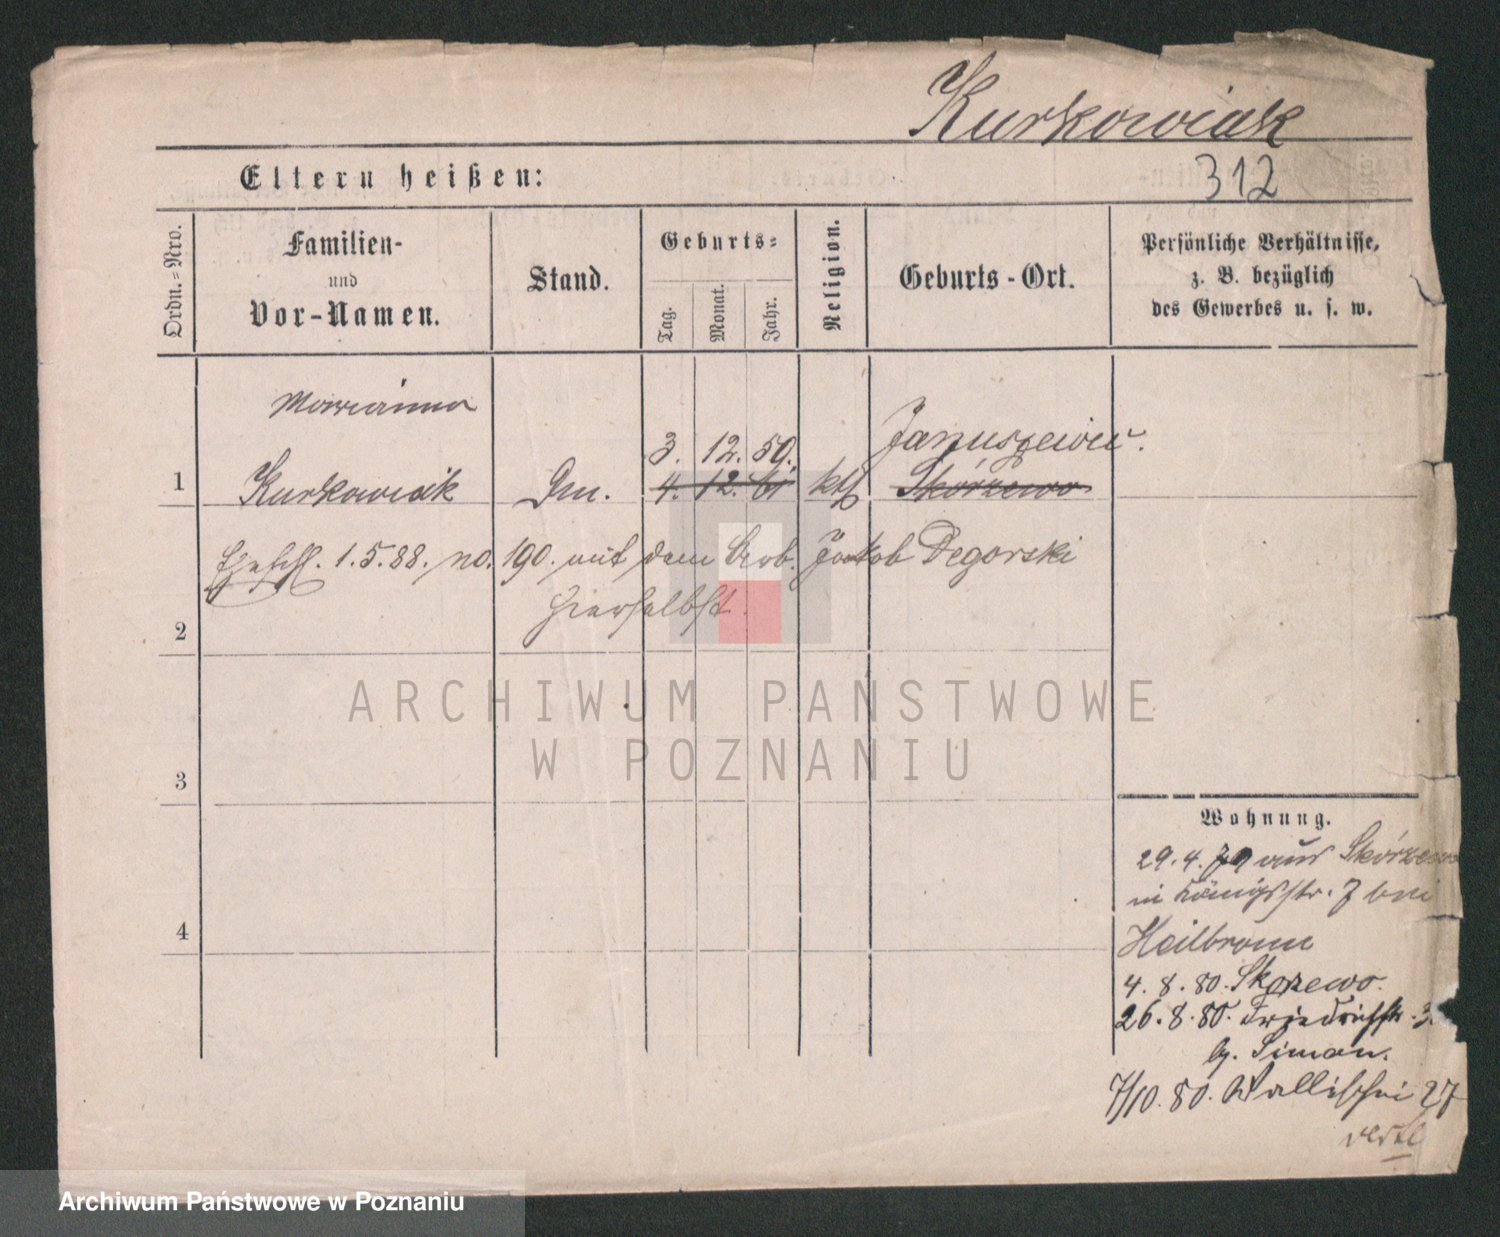 Kurkowiak
312
Eltern heißen:
Ordn.-Nro.
Familien-
und
Vor-Namen.
Stand.
Geburts-
Tag.
Monat.
Jahr.
Religion.
Geburts-Ort.
Persönliche Verhältnisse,
z. B. bezüglich
des Gewerbes u. s. w.
Marianna
3. 12. 59.
Januszewo.
1
Kurkowiak
4. 12. 61
kth
Skórzewo
Eheschl. 1. 5. 88. no. 190. mit dem Arb. Jakob Degorski
hierselbst.
2
ARCHIWUM PAŃSTWOWE
W POZNANIU
3
4
Wohnung.
29. 4. 79 aus Skórzewo
in Königsstr. 7 bei
Heilbronn
4. 8. 80. Skorzewo.
26. 8. 80. Friedrichstr. 3
b. Simon.
7/10. 80. Wallischei 27
Archiwum Państwowe w Poznaniu